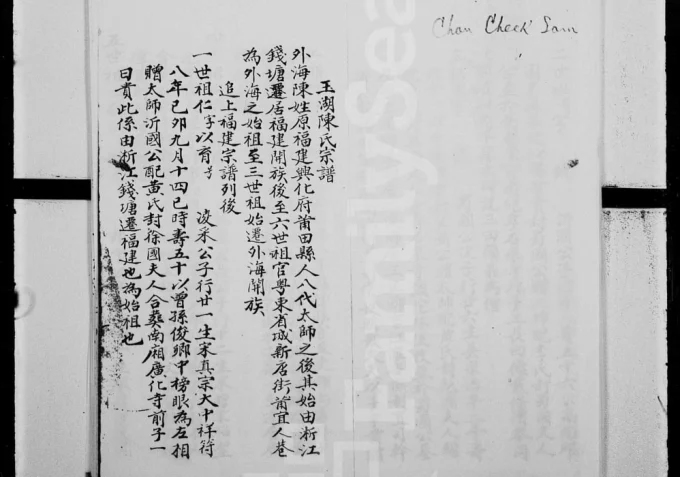 Chan Cheek Sam
玉湖陳氏宗譜
外海陳姓原福建興化府莆田縣人八代太師之後其始由浙江
錢塘遷居福建開族後至六世祖官粵東省城新居街莆宜人巷
為外海之始祖至三世祖始遷外海開族
追上福建宗譜列後
一世祖仁字以育 凌采公子行廿一生宋真宗大中祥符
八年已卯九月十四已時壽五十以曾孫俊卿中榜眼為左相
贈太師沂國公配黃氏封徐國夫人合葬南廂廣化寺前子一
曰貴此係由浙江錢塘遷福建也為始祖也
FamilySea